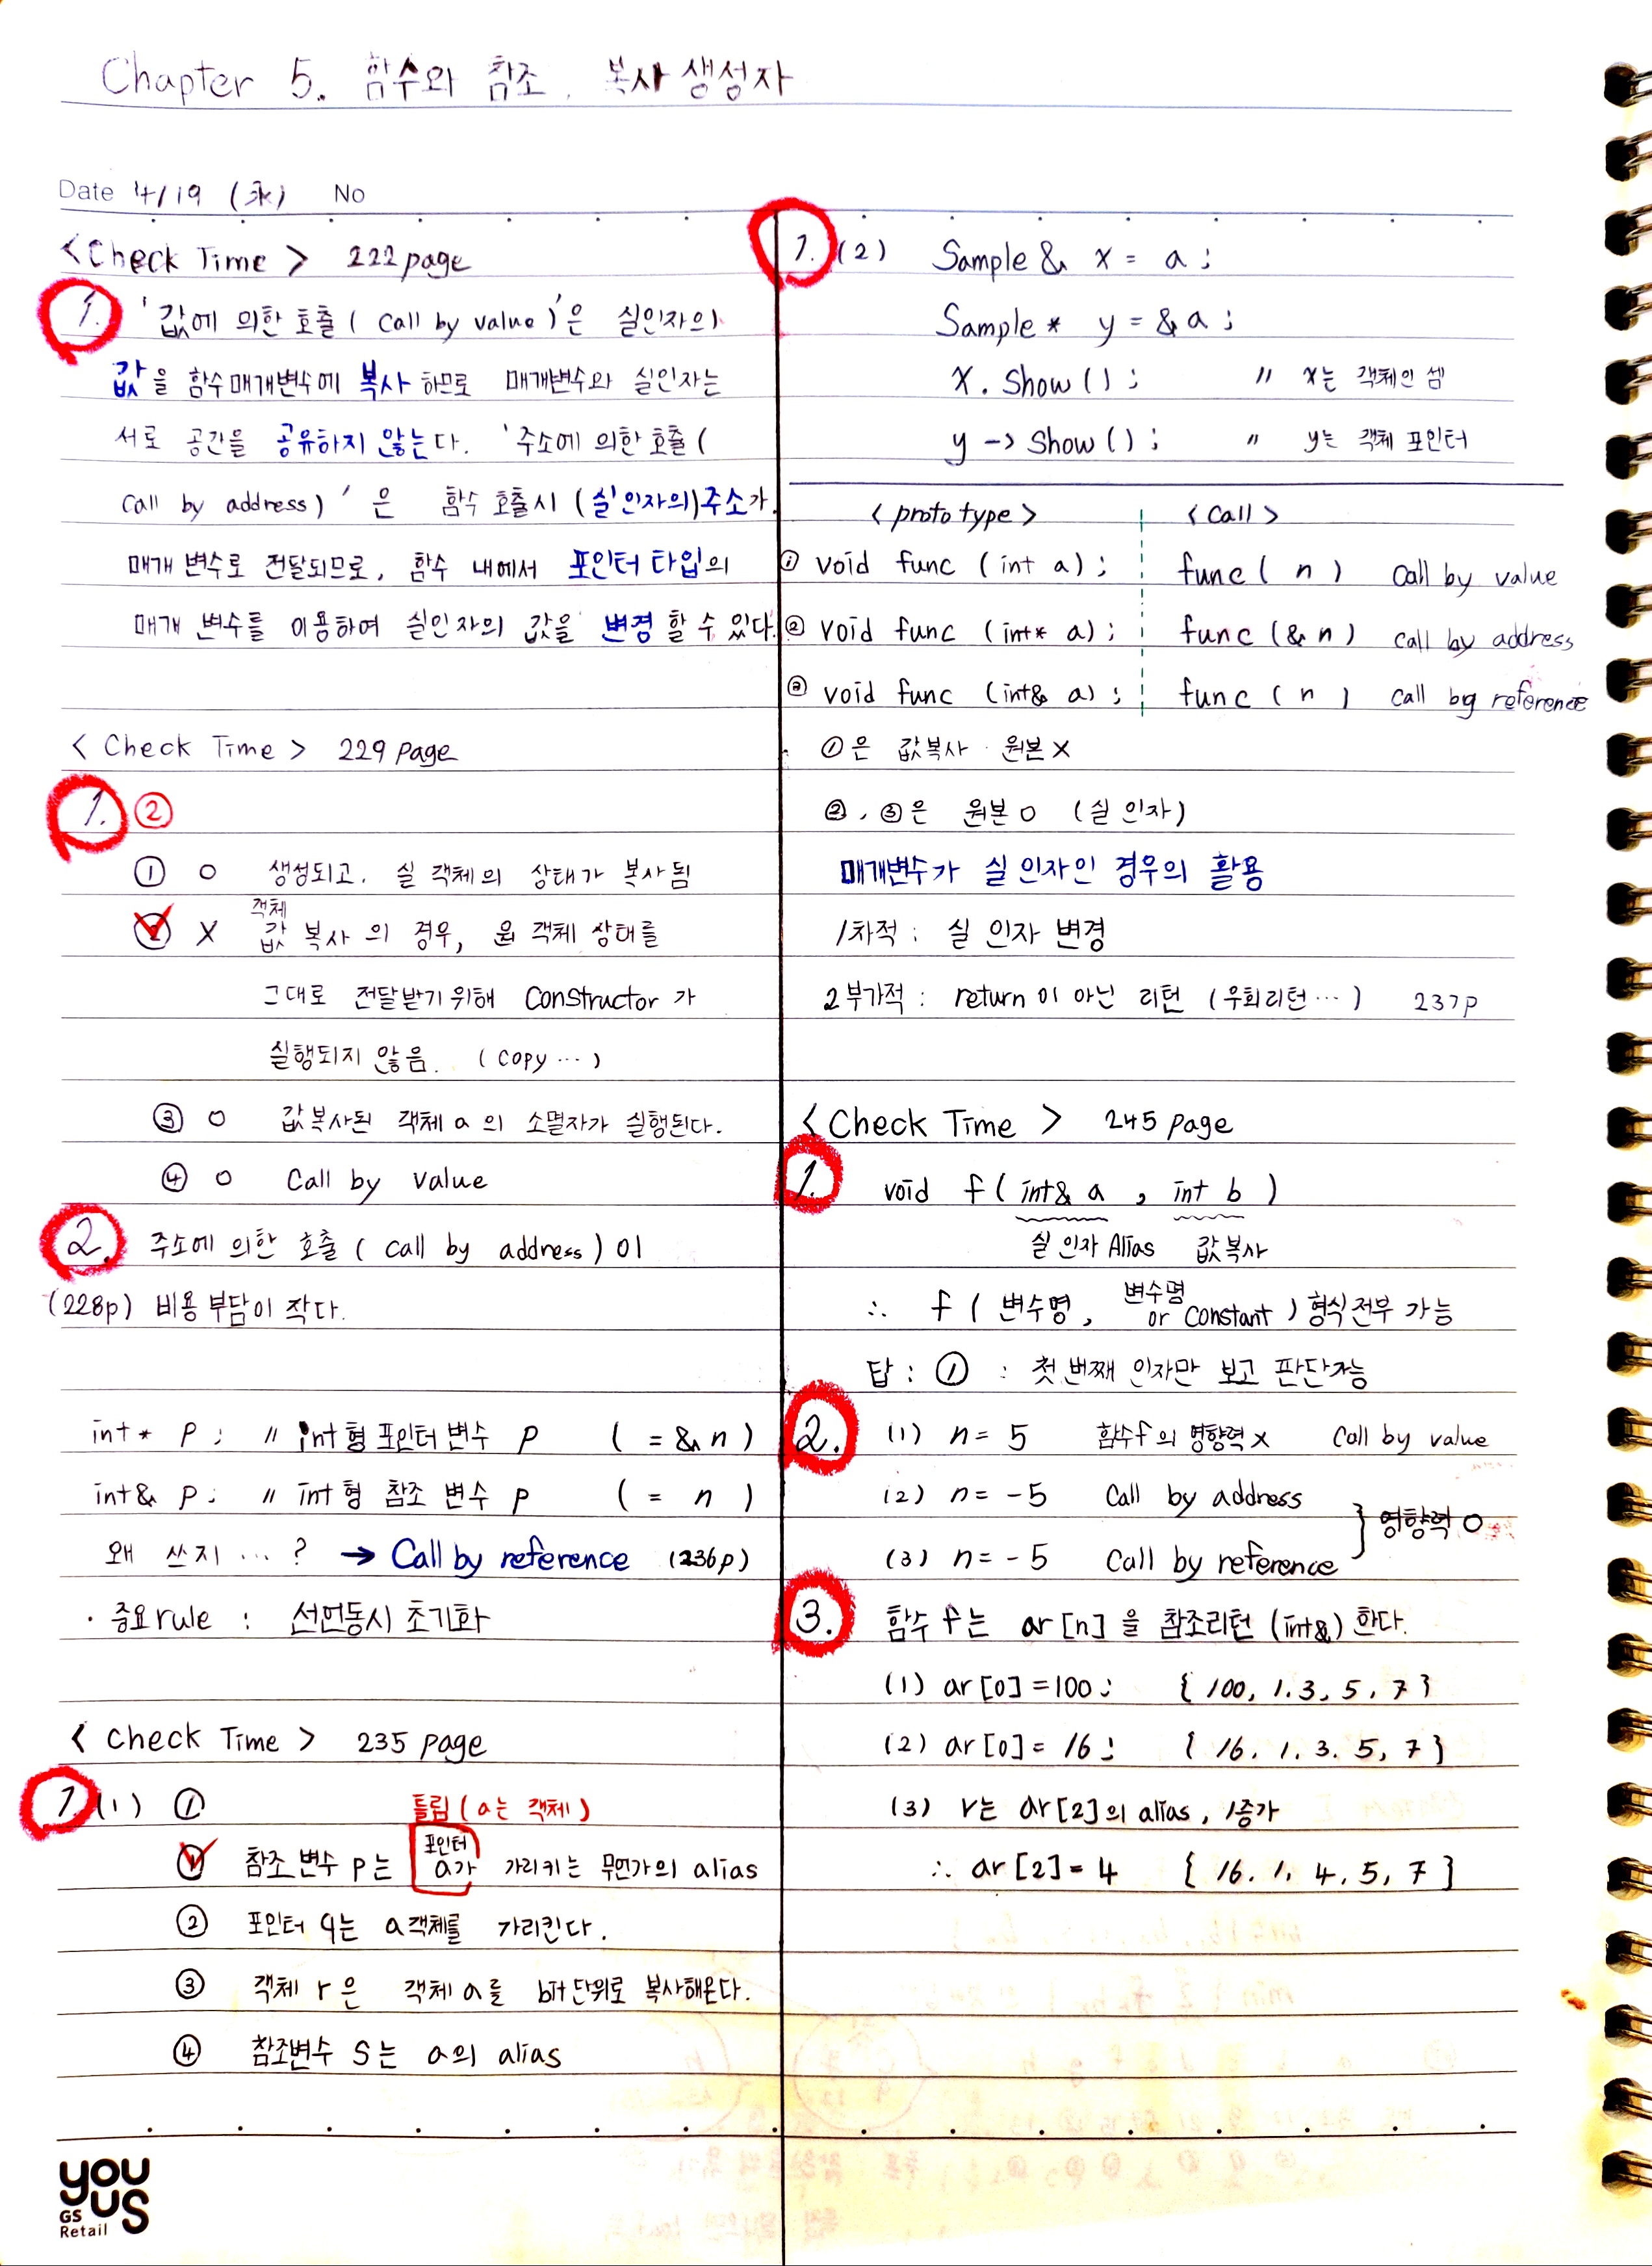 Chapter 5. 함수와 참조, 복사 생성자
Date 4/19 (水) No
<Check Time> 222 page
1. '값에 의한 호출( call by value )'은 실인자의
값을 함수매개변수에 복사하므로 매개변수와 실인자는
서로 공간을 공유하지 않는다. '주소에 의한 호출(
call by address)'은 함수 호출시 (실인자의)주소가
매개 변수로 전달되므로, 함수 내에서 포인터 타입의
매개 변수를 이용하여 실인자의 값을 변경 할 수 있다.
<Check Time> 229 page
1. ②
① O 생성되고, 실 객체의 상태가 복사됨
객체
② X 값 복사의 경우, 원 객체 상태를
그대로 전달받기 위해 Constructor가
실행되지 않음. (copy …)
③ O 값복사된 객체 a의 소멸자가 실행된다.
④ O Call by value
2. 주소에 의한 호출( call by address )이
(228p) 비용 부담이 작다.
int* p; // int형 포인터 변수 p ( = &n )
int& p; // int형 참조 변수 p ( = n )
왜 쓰지 … ? → Call by reference (236p)
· 중요rule : 선언동시 초기화
<Check Time> 235 page
1. (1) ①
틀림(a는 객체)
포인터
① 참조 변수 p는 a가 가리키는 무언가의 alias
② 포인터 q는 a객체를 가리킨다.
③ 객체 r은 객체 a를 bit단위로 복사해온다.
④ 참조변수 s는 a의 alias
you
us
GS
Retail
1. (2) Sample& x = a;
Sample* y = &a;
x.Show(); // x는 객체인 셈
y->Show(); // y는 객체 포인터
<prototype> <call>
① void func (int a); func( n ) call by value
② void func (int* a); func (& n) call by address
③ void func (int& a); func ( n ) call by reference
①은 값복사 · 원본 X
②, ③은 원본 O (실 인자)
매개변수가 실 인자인 경우의 활용
1차적 : 실 인자 변경
2부가적 : return이 아닌 리턴 (우회리턴…) 237p
<Check Time> 245 page
1. void f( int& a , int b )
실 인자 Alias 값복사
∴ f ( 변수명, 변수명 or Constant ) 형식 전부 가능
답 : ① : 첫 번째 인자만 보고 판단가능
2. (1) n = 5 함수f의 영향력 X Call by value
(2) n = -5 Call by address
영향력 O
(3) n = -5 Call by reference
3. 함수 f는 ar[n]을 참조리턴 (int&) 한다.
(1) ar[0]=100; { 100, 1, 3, 5, 7 }
(2) ar[0]= 16; { 16, 1, 3, 5, 7 }
(3) r는 ar[2]의 alias, 1증가
∴ ar[2]=4 { 16, 1, 4, 5, 7 }